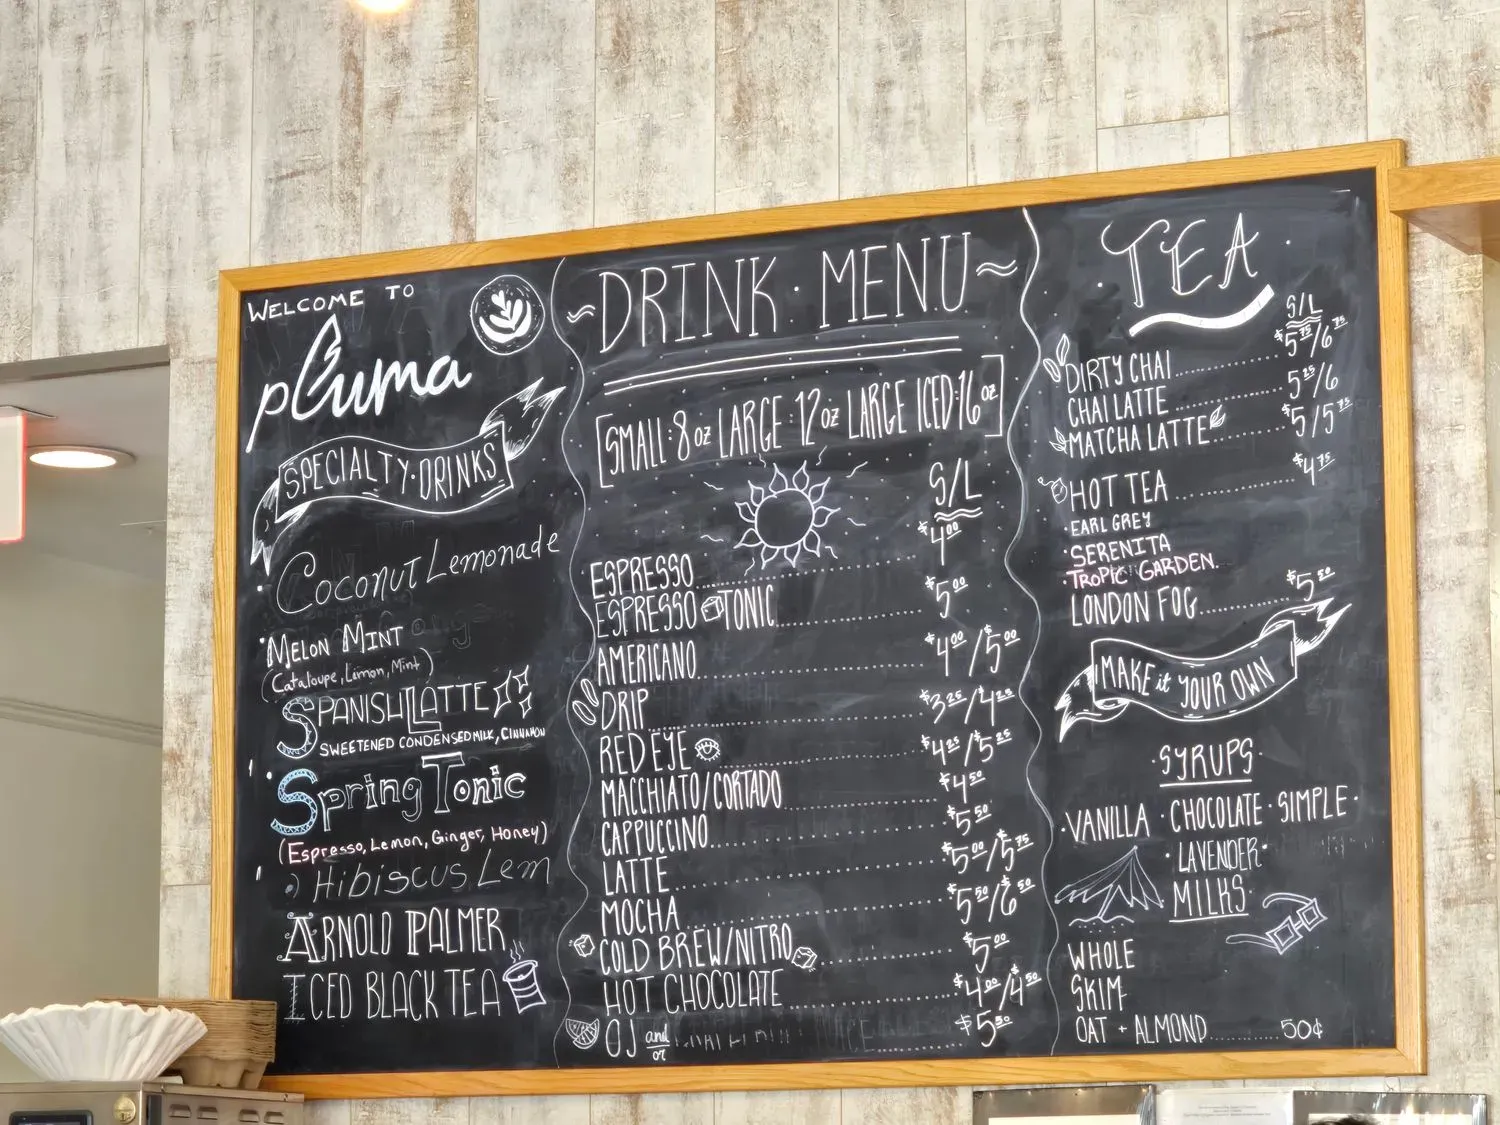 WELCOME TO
pluma
SPECIALTY·DRINKS
Coconut Lemonade
·MELON MINT
(Cataloupe, Lemon, Mint)
SPANISH LATTE
SWEETENED CONDENSED MILK, CINNAMON
·Spring Tonic
(Espresso, Lemon, Ginger, Honey)
Hibiscus Lem
ARNOLD PALMER
ICED BLACK TEA
~DRINK·MENU~
[SMALL:8oz LARGE:12oz LARGE ICED:16oz]
S/L
ESPRESSO $4.00
ESPRESSO TONIC $5.00
AMERICANO $4.00/$5.00
DRIP $3.25/$4.25
RED EYE $4.25/$5.25
MACCHIATO/CORTADO $4.50
CAPPUCCINO $5.50
LATTE $5.00/$5.75
MOCHA $5.50/$6.50
COLD BREW/NITRO $5.00
HOT CHOCOLATE $4.00/$4.50
OJ and/or $5.50
·TEA·
S/L
DIRTY CHAI $5.75/6.75
CHAI LATTE 5.25/6
MATCHA LATTE $5/5.75
HOT TEA $4.75
·EARL GREY
·SERENITA
·TROPIC GARDEN.
LONDON FOG $5.50
MAKE it YOUR OWN
·SYRUPS·
·VANILLA·CHOCOLATE·SIMPLE·
·LAVENDER·
MILKS·
WHOLE
SKIM
OAT + ALMOND 50¢